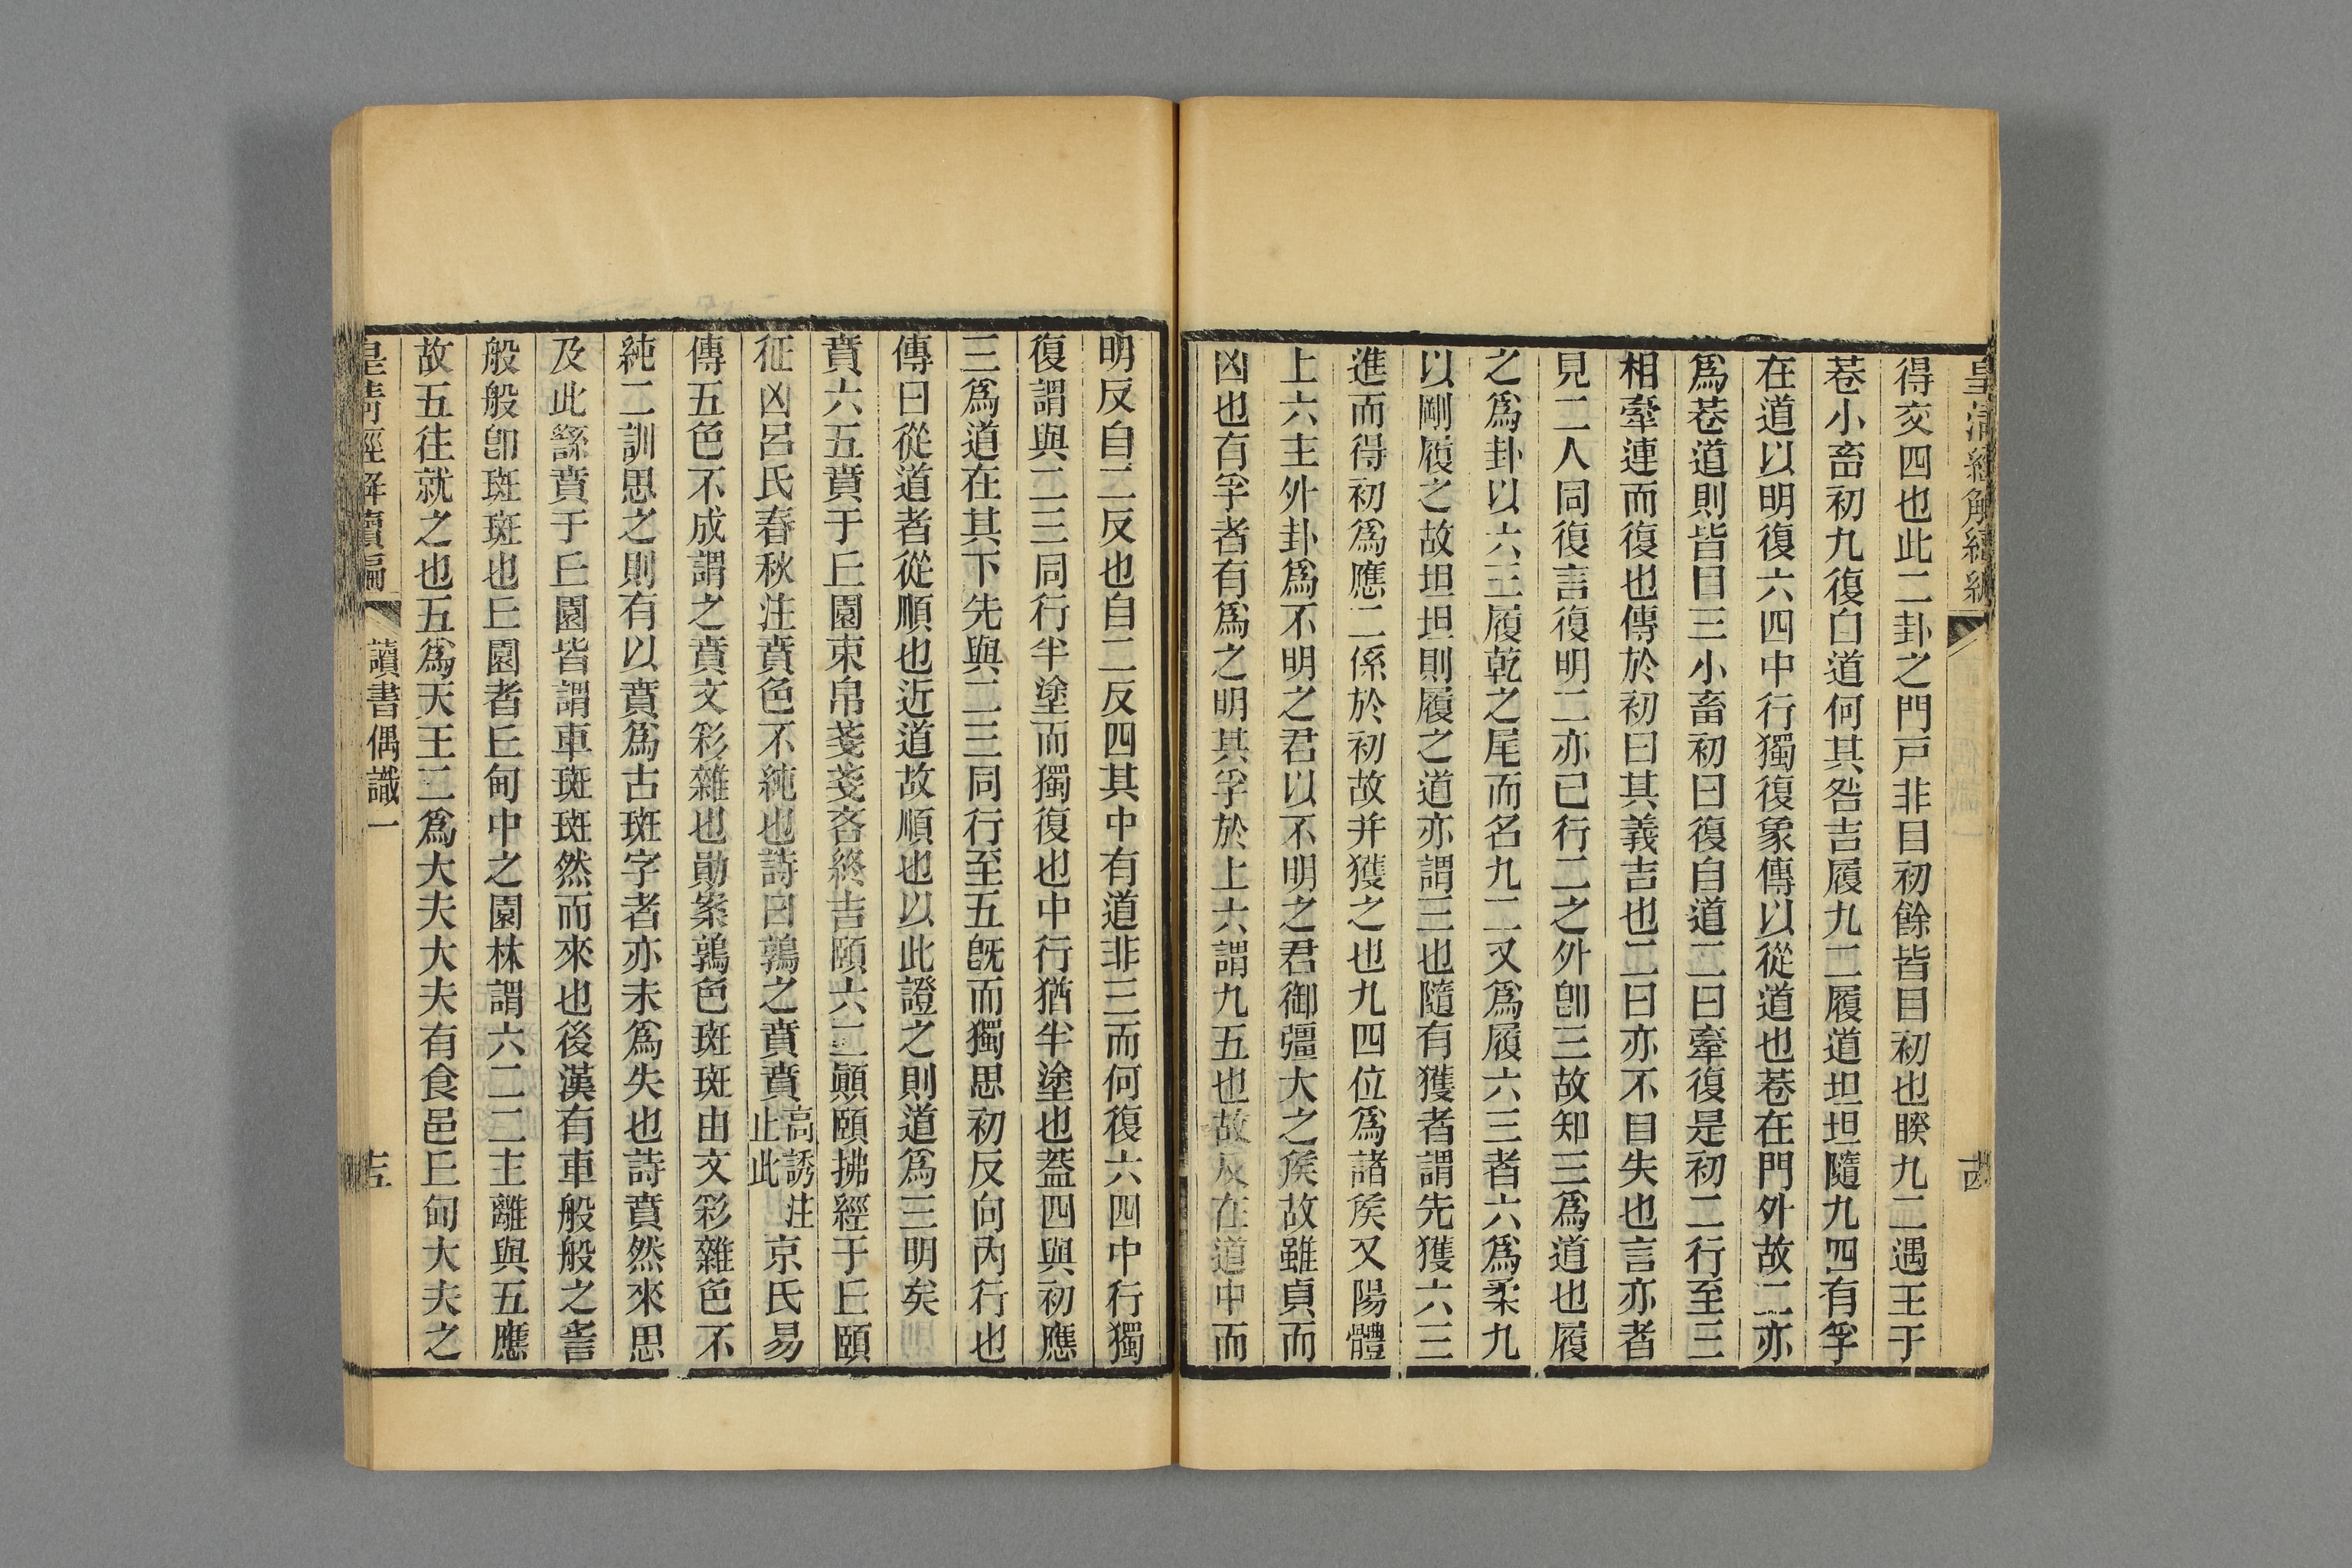 皇清經解續編
得交四也此二卦之門戸非目初餘皆目初也睽九二遇主于
巷小畜初九復自道何其咎吉履九二履道坦坦隨九四有孚
在道以明復六四中行獨復象傳以從道也巷在門外故二亦
爲巷道則皆目三小畜初曰復自道二曰牽復是初二行至三
相牽連而復也傳於初曰其義吉也二曰亦不目失也言亦者
見二人同復言復明二亦已行二之外卽三故知三爲道也履
之爲卦以六三履乾之尾而名九二又爲履六三者六爲柔九
以剛履之故坦坦則履之道亦謂三也隨有獲者謂先獲六三
進而得初爲應二係於初故并獲之也九四位爲諸矦又陽體
上六主外卦爲不明之君以不明之君御彊大之矦故雖貞而
凶也有孚者有爲之明其孚於上六謂九五也故及在道中而
明反自二反也自二反四其中有道非三而何復六四中行獨
復謂與二三同行半塗而獨復也中行猶半塗也葢四與初應
三爲道在其下先與二三同行至五旣而獨思初反向內行也
傳曰從道者從順也近道故順也以此證之則道爲三明矣
賁六五賁于丘園束帛戔戔吝終吉頤六二顚頤拂經于丘頤
征凶呂氏春秋注賁色不純也詩曰鶉之賁賁高誘注止此京氏易
傳五色不成謂之賁文彩雜也勛案鶉色斑斑由文彩雜色不
純二訓思之則有以賁爲古斑字者亦未爲失也詩賁然來思
及此繇賁于丘園皆謂車斑斑然而來也後漢有車般般之言
般般卽斑斑也丘園者丘甸中之園林謂六二二主離與五應
故五往就之也五爲天王二爲大夫大夫有食邑丘甸大夫之
皇清經解續編
讀書偶識一